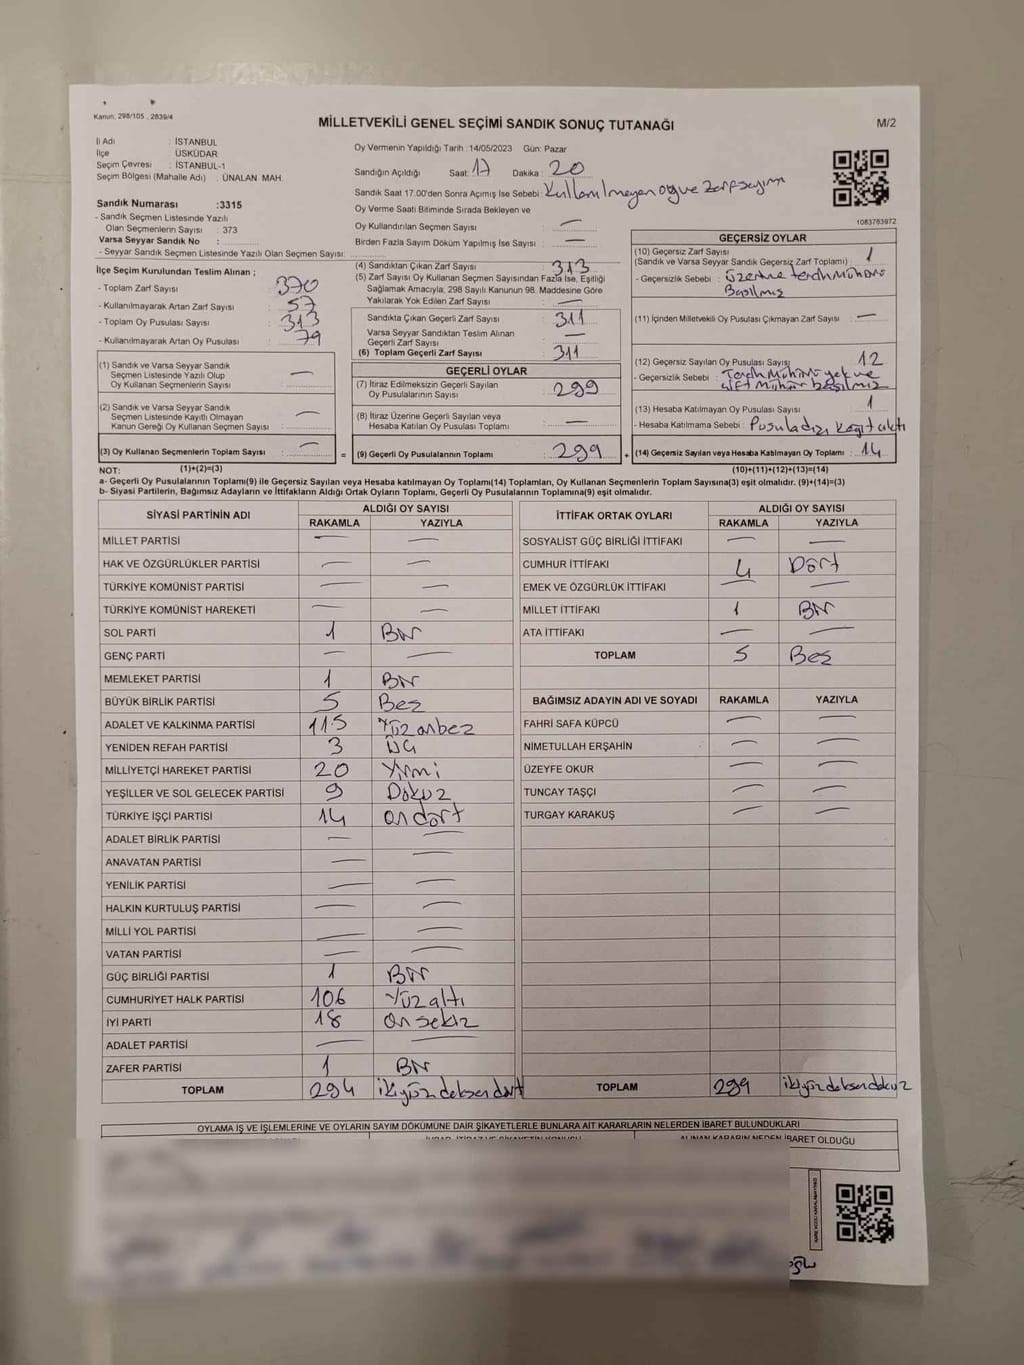 Kanun, 298/105 , 2839/4
MİLLETVEKİLİ GENEL SEÇİMİ SANDIK SONUÇ TUTANAĞI
M/2
İl Adı : İSTANBUL
İlçe : ÜSKÜDAR
Seçim Çevresi : İSTANBUL-1
Seçim Bölgesi (Mahalle Adı) : ÜNALAN MAH.
Oy Vermenin Yapıldığı Tarih : 14/05/2023 Gün: Pazar
Sandığın Açıldığı Saat: 17 Dakika : 20
Sandık Saat 17.00'den Sonra Açımış İse Sebebi: Kullanılmayan oy ve Zarf sayım
Oy Verme Saati Bitiminde Sırada Bekleyen ve
Oy Kullandırılan Seçmen Sayısı : —
Birden Fazla Sayım Döküm Yapılmış İse Sayısı : —
1083783972
Sandık Numarası :3315
- Sandık Seçmen Listesinde Yazılı
Olan Seçmenlerin Sayısı : 373
Varsa Seyyar Sandık No :
- Seyyar Sandık Seçmen Listesinde Yazılı Olan Seçmen Sayısı:
İlçe Seçim Kurulundan Teslim Alınan ;
- Toplam Zarf Sayısı : 370
- Kullanılmayarak Artan Zarf Sayısı : 57
- Toplam Oy Pusulası Sayısı : 313
- Kullanılmayarak Artan Oy Pusulası : 79
(1) Sandık ve Varsa Seyyar Sandık
Seçmen Listesinde Yazılı Olup
Oy Kullanan Seçmenlerin Sayısı : —
(2) Sandık ve Varsa Seyyar Sandık
Seçmen Listesinde Kayıtlı Olmayan
Kanun Gereği Oy Kullanan Seçmen Sayısı : —
(3) Oy Kullanan Seçmenlerin Toplam Sayısı : — =
(4) Sandıktan Çıkan Zarf Sayısı : 313
(5) Zarf Sayısı Oy Kullanan Seçmen Sayısından Fazla İse, Eşitliği
Sağlamak Amacıyla, 298 Sayılı Kanunun 98. Maddesine Göre
Yakılarak Yok Edilen Zarf Sayısı : —
Sandıkta Çıkan Geçerli Zarf Sayısı : 311
Varsa Seyyar Sandıktan Teslim Alınan
Geçerli Zarf Sayısı : —
(6) Toplam Geçerli Zarf Sayısı : 311
GEÇERLİ OYLAR
(7) İtiraz Edilmeksizin Geçerli Sayılan
Oy Pusulalarının Sayısı : 299
(8) İtiraz Üzerine Geçerli Sayılan veya
Hesaba Katılan Oy Pusulası Toplamı : —
(9) Geçerli Oy Pusulalarının Toplamı : 299 +
GEÇERSİZ OYLAR
(10) Geçersiz Zarf Sayısı : 1
(Sandık ve Varsa Seyyar Sandık Geçersiz Zarf Toplamı)
- Geçersizlik Sebebi : Üzerine tercih Mührü
Basılmış
(11) İçinden Milletvekili Oy Pusulası Çıkmayan Zarf Sayısı : —
(12) Geçersiz Sayılan Oy Pusulası Sayısı : 12
- Geçersizlik Sebebi : Tercih Mührü yok ve
çift mühür basılmış
(13) Hesaba Katılmayan Oy Pusulası Sayısı : 1
- Hesaba Katılmama Sebebi : Pusula dışı kağıt çıktı
(14) Geçersiz Sayılan veya Hesaba Katılmayan Oy Toplamı : 14
NOT: (1)+(2)=(3) (10)+(11)+(12)+(13)=(14)
a- Geçerli Oy Pusulalarının Toplamı(9) ile Geçersiz Sayılan veya Hesaba Katılmayan Oy Toplamı(14) Toplamları, Oy Kullanan Seçmenlerin Toplam Sayısına(3) eşit olmalıdır. (9)+(14)=(3)
b- Siyasi Partilerin, Bağımsız Adayların ve İttifakların Aldığı Ortak Oyların Toplamı, Geçerli Oy Pusulalarının Toplamına(9) eşit olmalıdır.
SİYASİ PARTİNİN ADI ALDIĞI OY SAYISI
RAKAMLA YAZIYLA
MİLLET PARTİSİ — —
HAK VE ÖZGÜRLÜKLER PARTİSİ — —
TÜRKİYE KOMÜNİST PARTİSİ — —
TÜRKİYE KOMÜNİST HAREKETİ — —
SOL PARTİ 1 Bir
GENÇ PARTİ — —
MEMLEKET PARTİSİ 1 Bir
BÜYÜK BİRLİK PARTİSİ 5 Beş
ADALET VE KALKINMA PARTİSİ 115 Yüz onbeş
YENİDEN REFAH PARTİSİ 3 Üç
MİLLİYETÇİ HAREKET PARTİSİ 20 Yirmi
YEŞİLLER VE SOL GELECEK PARTİSİ 9 Dokuz
TÜRKİYE İŞÇİ PARTİSİ 14 on dört
ADALET BİRLİK PARTİSİ — —
ANAVATAN PARTİSİ — —
YENİLİK PARTİSİ — —
HALKIN KURTULUŞ PARTİSİ — —
MİLLİ YOL PARTİSİ — —
VATAN PARTİSİ — —
GÜÇ BİRLİĞİ PARTİSİ 1 Bir
CUMHURİYET HALK PARTİSİ 106 Yüz altı
İYİ PARTİ 18 On sekiz
ADALET PARTİSİ — —
ZAFER PARTİSİ 1 Bir
TOPLAM 294 ikiyüz doksan dört
İTTİFAK ORTAK OYLARI ALDIĞI OY SAYISI
RAKAMLA YAZIYLA
SOSYALİST GÜÇ BİRLİĞİ İTTİFAKI — —
CUMHUR İTTİFAKI 4 Dört
EMEK VE ÖZGÜRLÜK İTTİFAKI — —
MİLLET İTTİFAKI 1 Bir
ATA İTTİFAKI — —
TOPLAM 5 Beş
BAĞIMSIZ ADAYIN ADI VE SOYADI RAKAMLA YAZIYLA
FAHRİ SAFA KÜPCÜ — —
NİMETULLAH ERŞAHİN — —
ÜZEYFE OKUR — —
TUNCAY TAŞÇI — —
TURGAY KARAKUŞ — —
TOPLAM 299 ikiyüz doksan dokuz
OYLAMA İŞ VE İŞLEMLERİNE VE OYLARIN SAYIM DÖKÜMÜNE DAİR ŞİKAYETLERLE BUNLARA AİT KARARLARIN NELERDEN İBARET BULUNDUKLARI
ALINAN KARARIN NEDEN İBARET OLDUĞU